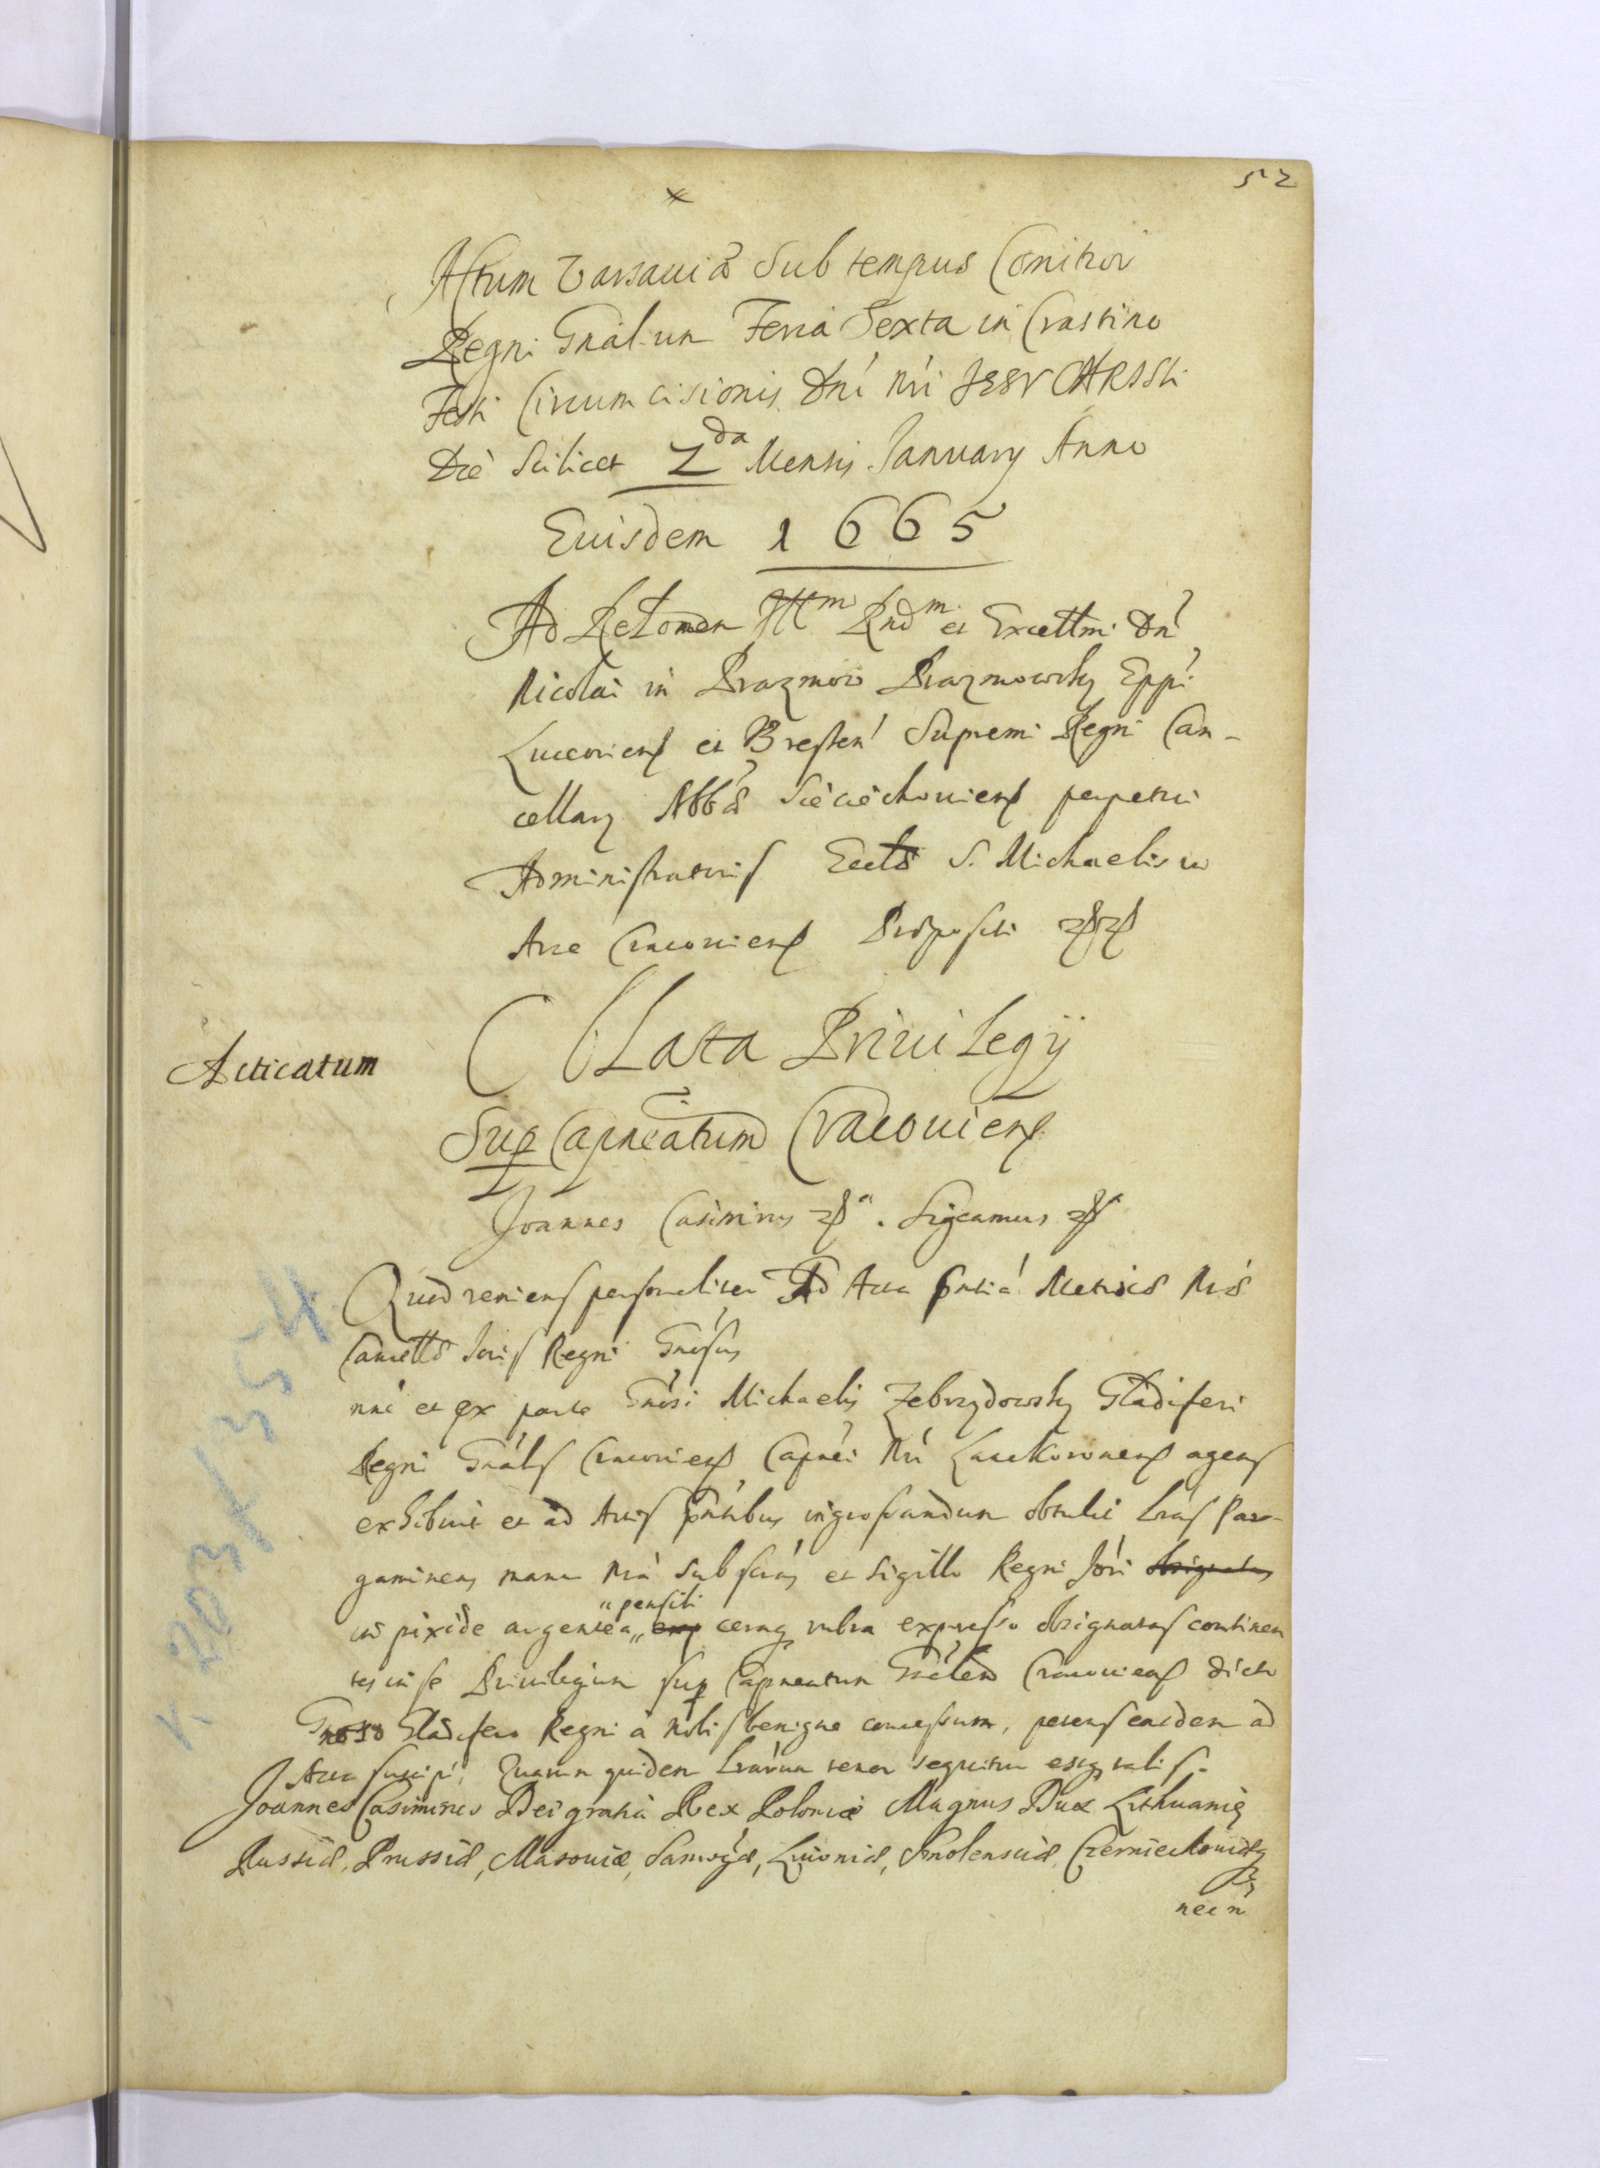 52
Actum Varsaviæ Sub tempus Comitiorũ
Regni Gnãlium Feria Sexta in Crastino
Festi Circumcisionis Dnĩ Nrĩ JESV CHRISti
Die Scilicet 2da Mensis January Anno
Eiusdem 1665
Ad Relãonem Illm Rndm et Excellmi Dnĩ
Nicolai in Prazmow Prazmowsky Eppĩ
Luceorien et Bresten Supremi Regni Can-
cellary Abbã Scieciechovien perpetui
Administratoris Eccłæ S. Michaelis in
Arce Cracovien Præpositi
Acticatum
Oblata Privilegÿ
Sup Capneatum Cracovien
Joannes Casimirus . Significamus
Quod veniens personaliter Ad Acta Pñtia Metrices Nræ
Cancellæ Regni Gnosus
nne et ex parte Gnosi Michaelis Zebrzydowsky Gladiferi
Regni Gnãls Cracovien Capnei Nrĩ Lanckoronen agens
exhibuit et ad Actis pñtibus ingrossandum obtulit Lras Par-
gamineas manu Nra subscrãs et sigillo Regni
in pixide argentea pensili ceraq rubra expresso obsignatas continen
tes in se Privilegium sup Capneatum Gnãlem Cracovien dicto
Gnoso Gladifero Regni à Nobis benigne concessum, petens easdem ad
Acta suscipi, Quarum quidem Lrarum tenor sequitur estq talis.
Joannes Casimirus Dei gratia Rex Poloniæ Magnus Dux Lithuaniæ
Russiæ, Prussiæ, Masoviæ, Samogæ, Livoniæ, Smolensciæ, Czerniechoviæq
nec n